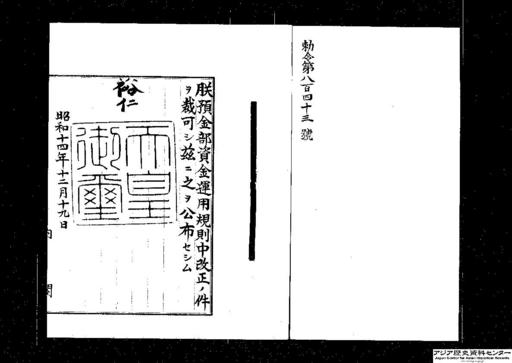 勅令第八百四十三號
朕預金部資金運用規則中改正ノ件
ヲ裁可シ茲ニ之ヲ公布セシム
裕仁
天皇
御璽
昭和十四年十二月十九日
内閣
アジア歴史資料センター
Japan Center for Asian Historical Records